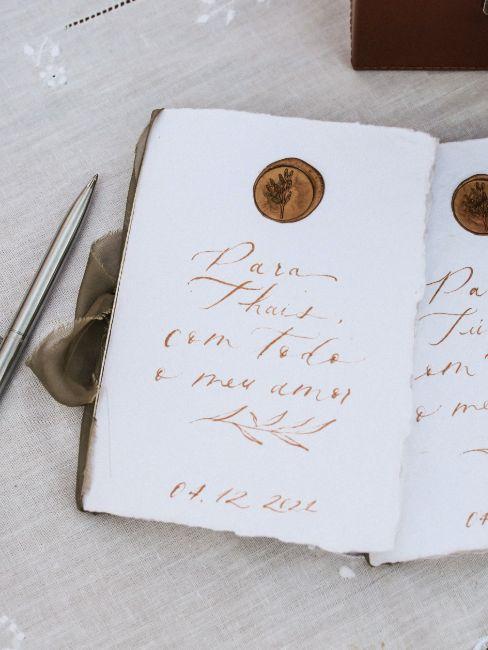 Para
Thais,
com todo
o meu amor
04.12.2021
Pa
Tú
om
o me
04